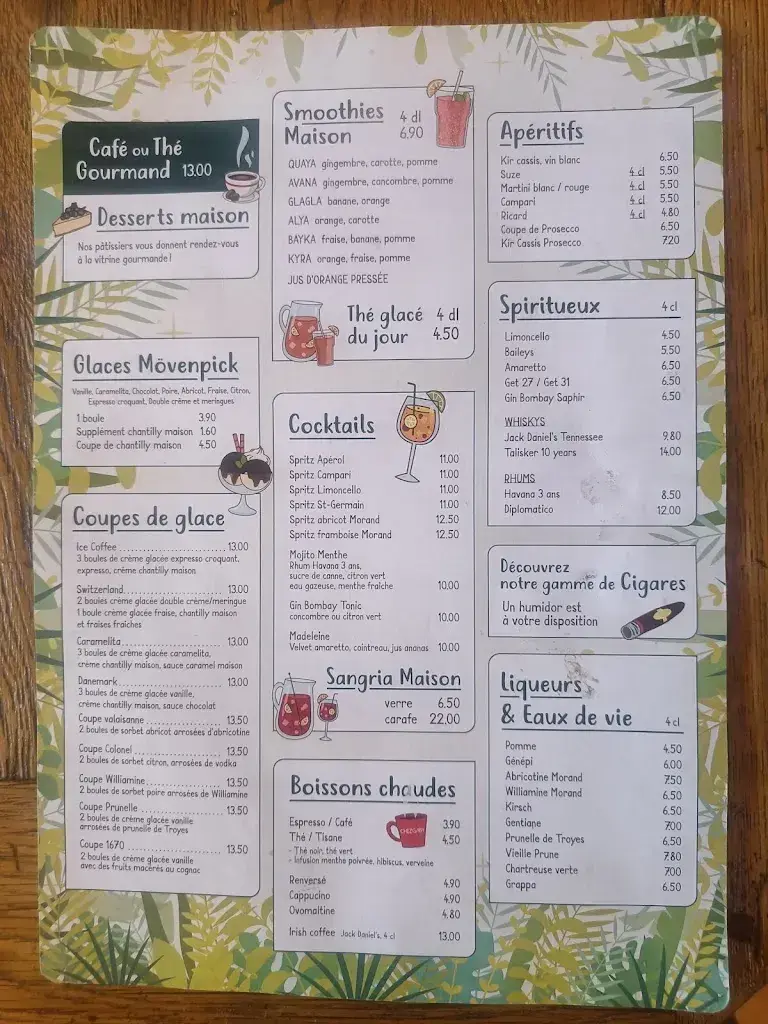 Café ou Thé
Gourmand 13.00
Desserts maison
Nos pâtissiers vous donnent rendez-vous
à la vitrine gourmande!
Glaces Mövenpick
Vanille, Caramelita, Chocolat, Poire, Abricot, Fraise, Citron,
Espresso croquant, Double crème et meringues
1 boule 3.90
Supplément chantilly maison 1.60
Coupe de chantilly maison 4.50
Coupes de glace
Ice Coffee 13.00
3 boules de crème glacée expresso croquant,
expresso, crème chantilly maison
Switzerland 13.00
2 boules crème glacée double crème/meringue
1 boule crème glacée fraise, chantilly maison
et fraises fraîches
Caramelita 13.00
3 boules de crème glacée caramelita,
crème chantilly maison, sauce caramel maison
Danemark 13.00
3 boules de crème glacée vanille,
crème chantilly maison, sauce chocolat
Coupe valaisanne 13.50
2 boules de sorbet abricot arrosées d'abricotine
Coupe Colonel 13.50
2 boules de sorbet citron, arrosées de vodka
Coupe Williamine 13.50
2 boules de sorbet poire arrosées de Williamine
Coupe Prunelle 13.50
2 boules de crème glacée vanille
arrosées de prunelle de Troyes
Coupe 1670 13.50
2 boules de crème glacée vanille
avec des fruits macérés au cognac
Smoothies 4 dl
Maison 6.90
QUAYA gingembre, carotte, pomme
AVANA gingembre, concombre, pomme
GLAGLA banane, orange
ALYA orange, carotte
BAYKA fraise, banane, pomme
KYRA orange, fraise, pomme
JUS D'ORANGE PRESSÉE
Thé glacé 4 dl
du jour 4.50
Cocktails
Spritz Apérol 11.00
Spritz Campari 11.00
Spritz Limoncello 11.00
Spritz St-Germain 11.00
Spritz abricot Morand 12.50
Spritz framboise Morand 12.50
Mojito Menthe
Rhum Havana 3 ans,
sucre de canne, citron vert
eau gazeuse, menthe fraîche 10.00
Gin Bombay Tonic
concombre ou citron vert 10.00
Madeleine
Velvet amaretto, cointreau, jus ananas 10.00
Sangria Maison
verre 6.50
carafe 22.00
Boissons chaudes
Espresso / Café 3.90
Thé / Tisane 4,50
- Thé noir, thé vert
- Infusion menthe poivrée, hibiscus, verveine
Renversé 4,90
Cappucino 4.90
Ovomaltine 4,80
Irish coffee Jack Daniel's, 4 cl 13,00
Apéritifs
Kir cassis, vin blanc 6.50
Suze 4 cl 5.50
Martini blanc / rouge 4 cl 5.50
Campari 4 cl 5.50
Ricard 4 cl 4.80
Coupe de Prosecco 6.50
Kir Cassis Prosecco 7.20
Spiritueux 4 cl
Limoncello 4.50
Baileys 5.50
Amaretto 6.50
Get 27 / Get 31 6.50
Gin Bombay Saphir 6.50
WHISKYS
Jack Daniel's Tennessee 9.80
Talisker 10 years 14.00
RHUMS
Havana 3 ans 8.50
Diplomatico 12.00
Découvrez
notre gamme de Cigares
Un humidor est
à votre disposition
Liqueurs
& Eaux de vie 4 cl
Pomme 4.50
Génépi 6.00
Abricotine Morand 7.50
Williamine Morand 6.50
Kirsch 6.50
Gentiane 7.00
Prunelle de Troyes 6.50
Vieille Prune 7.80
Chartreuse verte 7.00
Grappa 6.50